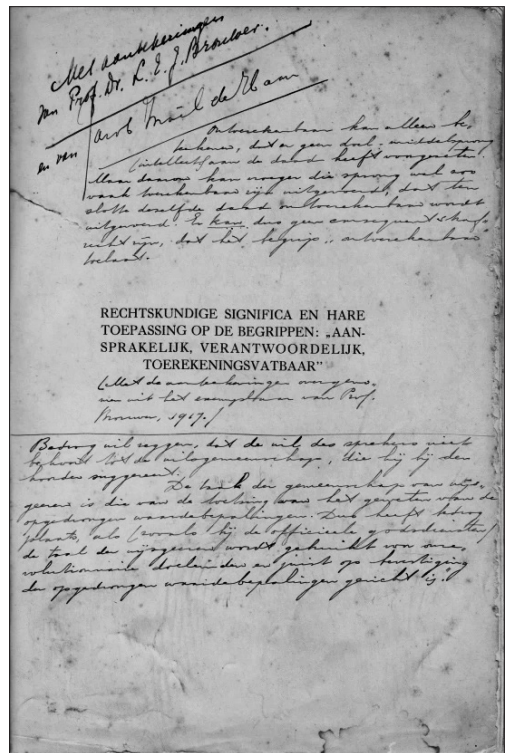 Met aanteekeningen
van Prof. Dr. L. E. J. Brouwer.
en van Jacob Israël de Haan
Ontoerekenbaar kan alleen be-
teekenen, dat er geen doel-middelsprong
(intellect) aan de daad heeft voorgezeten.
Maar daarom kan vroeger die sprong wel zoo
vaak toerekenbaar zijn uitgevoerd, dat ten
slotte dezelfde daad ontoerekenbaar wordt
uitgevoerd. Er kan dus geen consequent straf-
recht zijn, dat het begrip „ontoerekenbaar
toelaat.
RECHTSKUNDIGE SIGNIFICA EN HARE
TOEPASSING OP DE BEGRIPPEN: „AAN-
SPRAKELIJK, VERANTWOORDELIJK,
TOEREKENINGSVATBAAR”
(Met de aanteekeningen overgeno-
men uit het exemplaar van Prof.
Brouwer, 1917.)
Bedrog wil zeggen, dat de wil des sprekers niet
behoort tot de wilsgemeenschap, die hij bij den
hoorder suggereert.
De taal der gemeenschap van
is die van de van het geweten van de
opgedrongen waardebepalingen. Dus heeft bedrog
plaats, als (zooals bij de officieele godsdiensten)
de taal der wordt gebruikt voor
doeleinden en juist op bevestiging
der opgedrongen waardebepalingen gericht is.